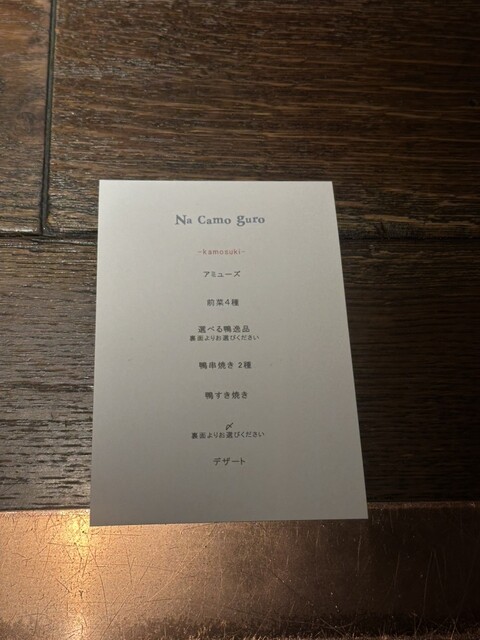 Na Camo guro
-kamosuki-
アミューズ
前菜4種
選べる鴨逸品
裏面よりお選びください
鴨串焼き 2種
鴨すき焼き
〆
裏面よりお選びください
デザート